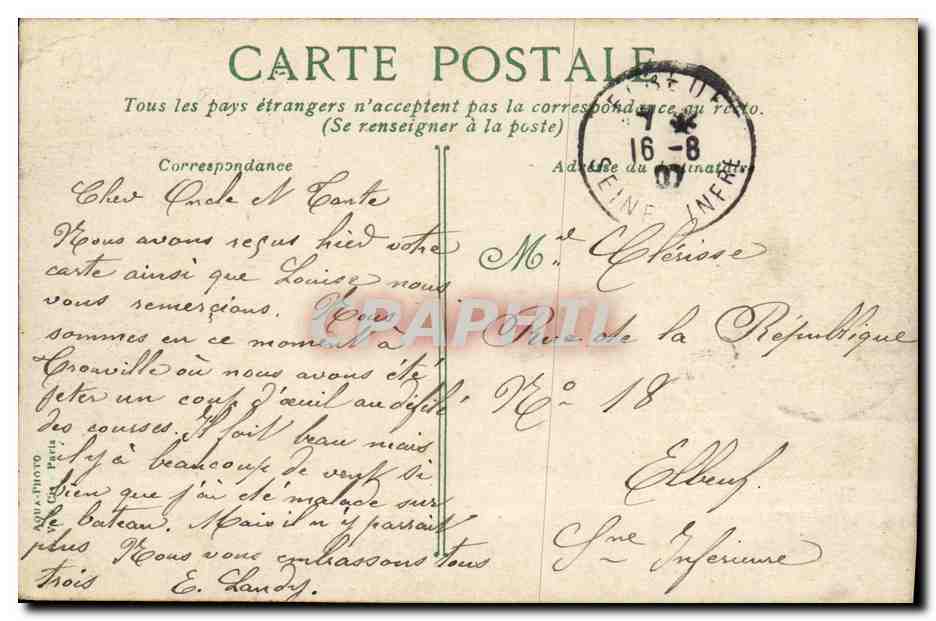 CARTE POSTALE
Tous les pays étrangers n'acceptent pas la correspondance au recto.
(Se renseigner à la poste)
Correspondance
Cher Oncle et Tante
Nous avons reçus hier votre
carte ainsi que Louise nous
vous remerçions. Nous
sommes en ce moment à
Trouville où nous avons été
jeter un coup d'œuil au défilé
des courses. Il fait beau mais
il y à beaucoup de vent si
bien que j'ai été malade sur
le bateau. Mais il n'y parrait
plus Nous vous embrassons tous
trois E. Landry.
AQUA-PHOTO
Paris
Adresse du destinataire
M. Clérisse
Rue de la République
No 18
Elbeuf.
Sne Inférieure
ELBEUF
7 *
16 -8
07
SEINE INFRE
CPAPHIL